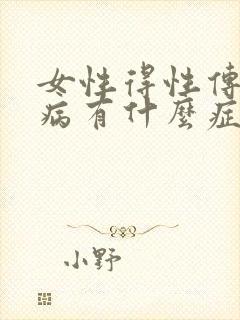 女性得性傳
病有什麼症
小野